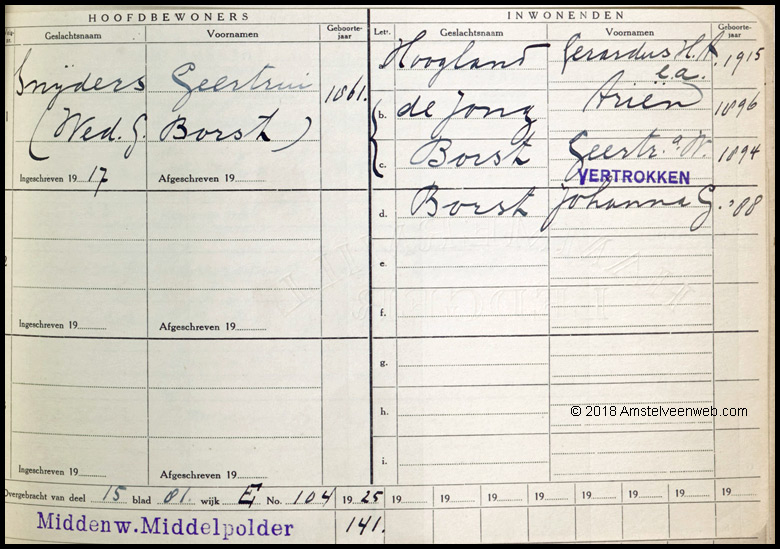 HOOFDBEWONERS
Geslachtsnaam Voornamen Geboorte-jaar
Snijders Geertrui 1861.
(Wed. G. Borst)
Ingeschreven 1917 Afgeschreven 19
Ingeschreven 19 Afgeschreven 19
Ingeschreven 19 Afgeschreven 19
INWONENDEN
Letr. Geslachtsnaam Voornamen Geboorte-jaar
Hoogland Gerardus H.A. 1915
e.a.
b. de Jong Ariën 1896
c. Borst Geertr.a W. 1894
VERTROKKEN
d. Borst Johanna G. '88
e.
f.
g.
h.
© 2018 Amstelveenweb.com
i.
Overgebracht van deel 15 blad 81. wijk E No. 104 1925 19 19 19 19 19 19 19 19
Middenw. Middelpolder 141.